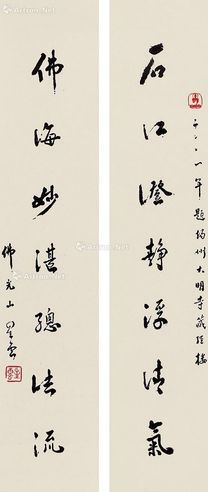 石江澄靜浮清氣
二〇〇一年題揚州大明寺藏經樓
佛海妙湛總法流
佛光山星雲
Artron.Net